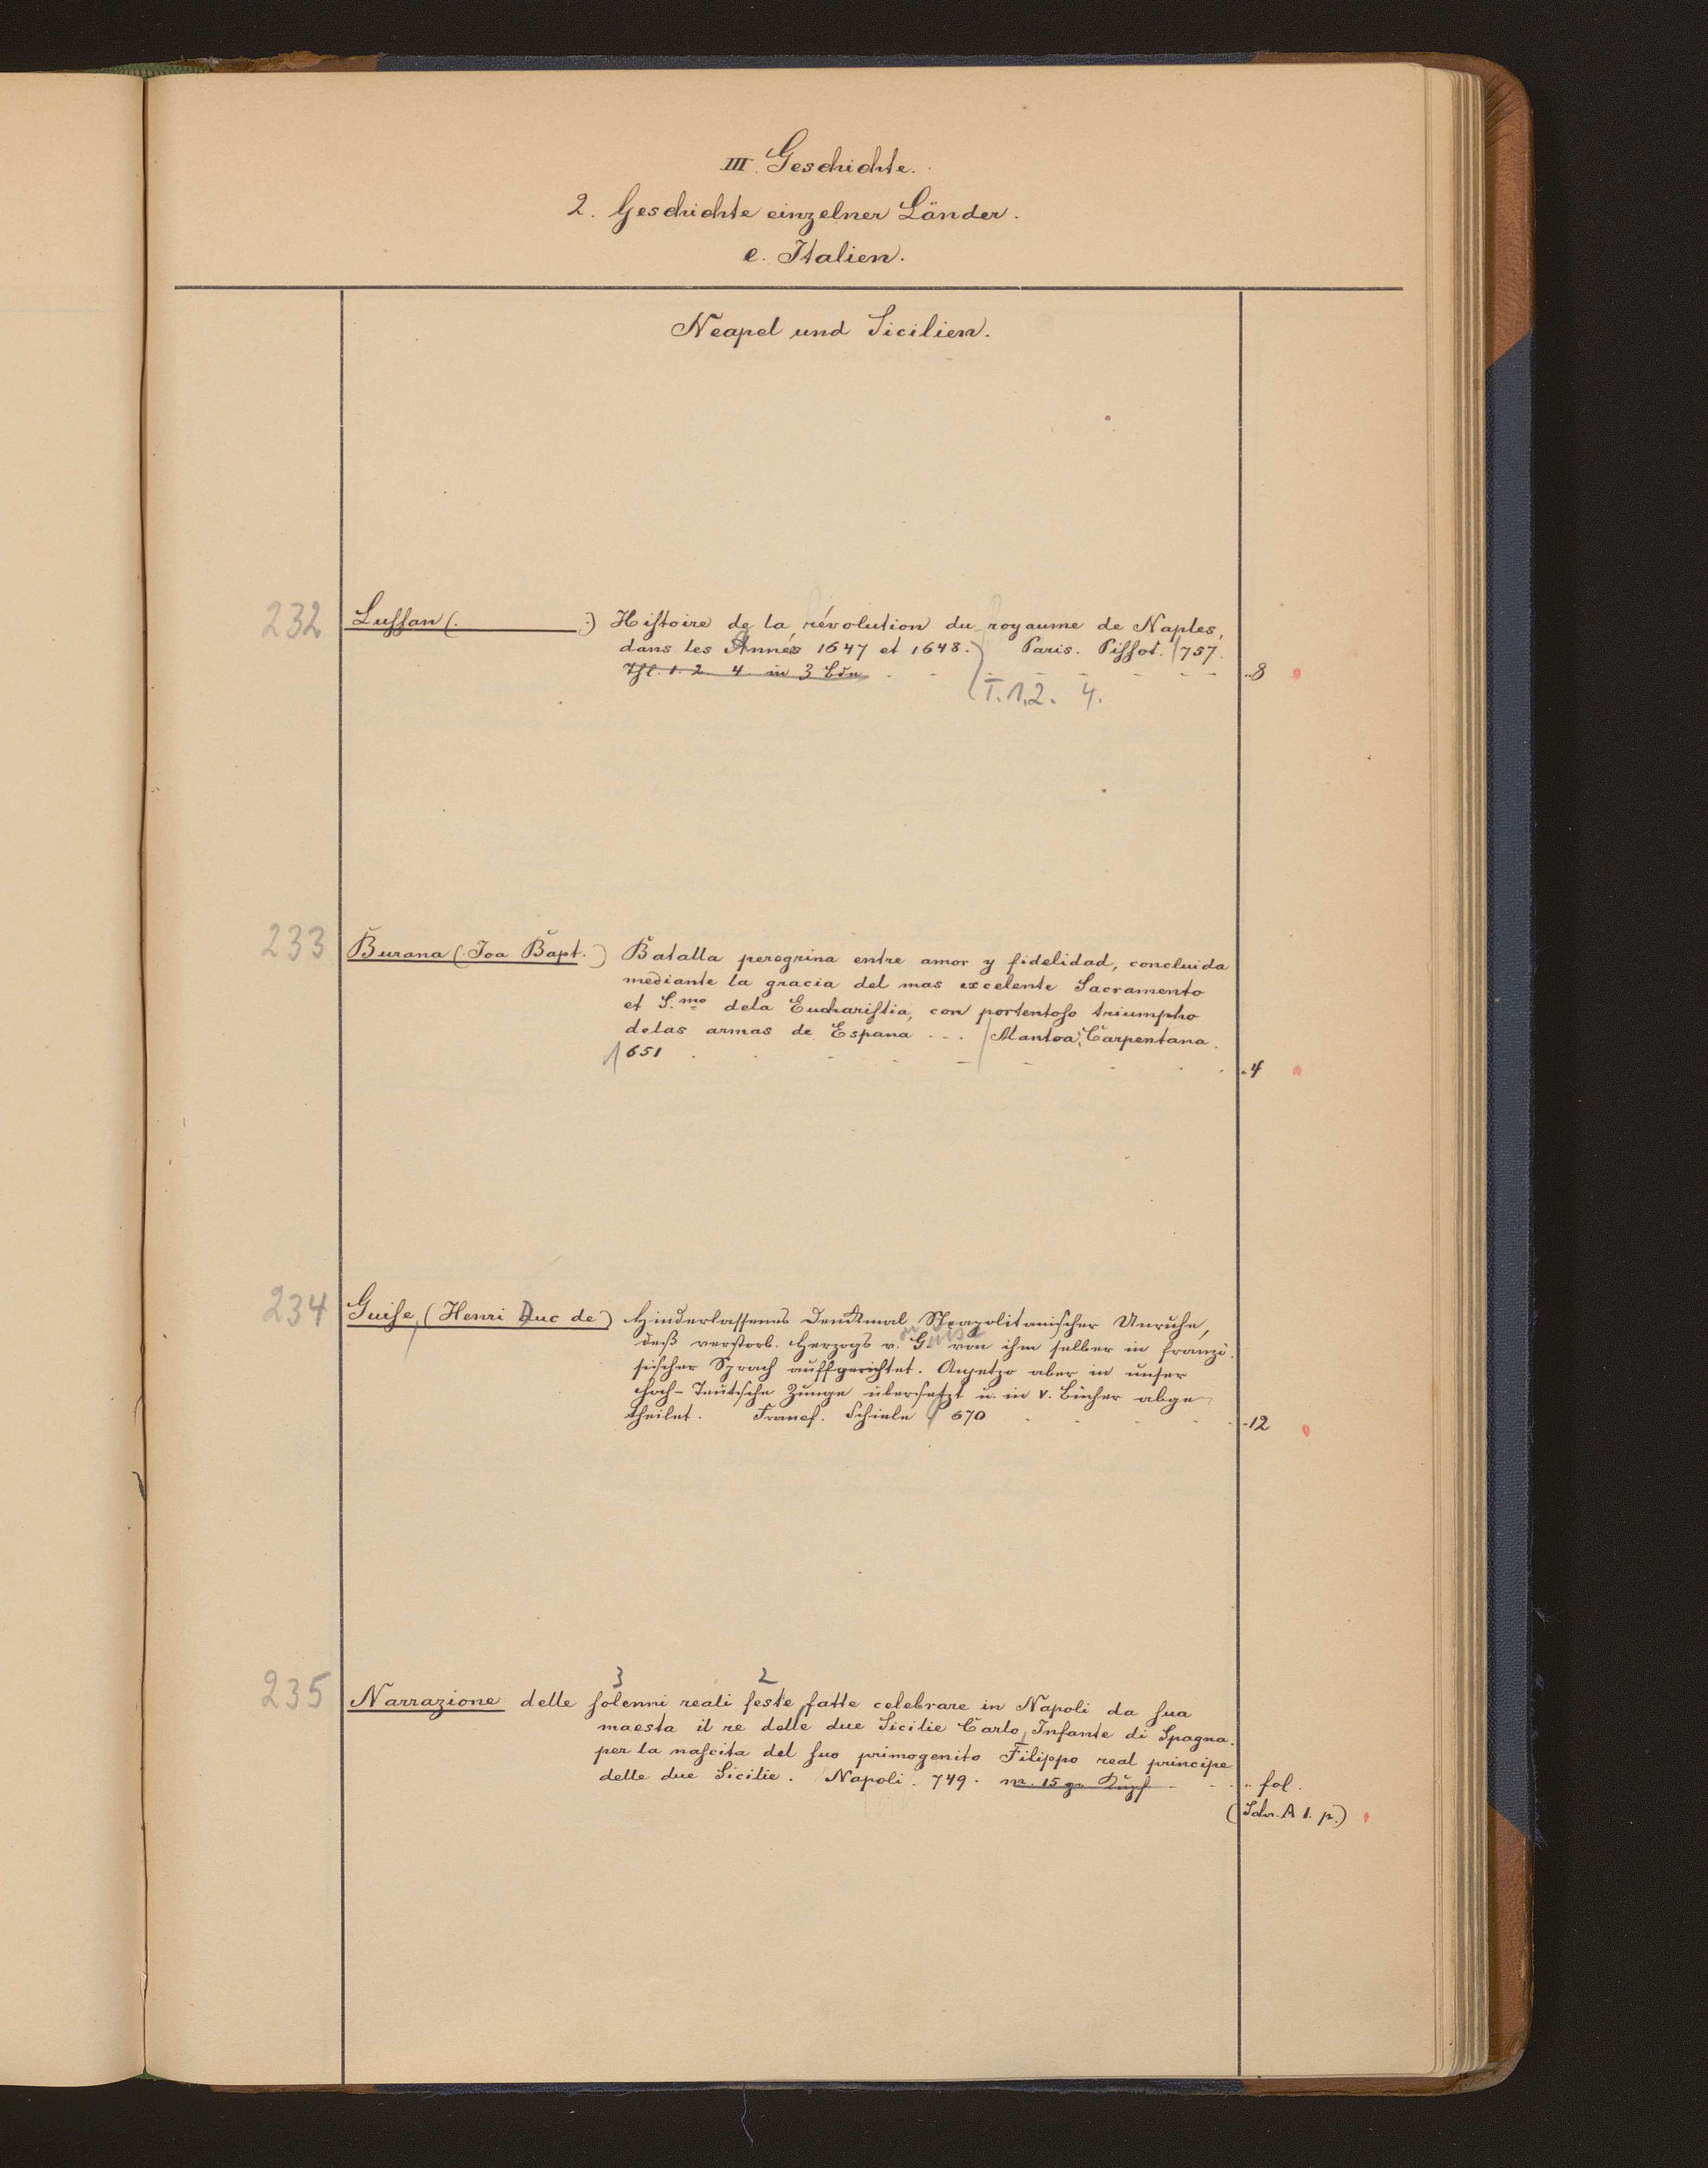 III. Geschichte.
2. Geschichte einzelner Länder.
e. Italien.
Neapel und Sicilien.
232 Lussan (. .) Histoire de la révolution du royaume de Naples,
dans les Annés 1647 et 1648. Paris. Pissot. 1757.
Thl. 1. 2. 4. in 3 Bdn 8
T. 1. 2. 4.
233 Burana (. Joa Bapt. .) Batalla peregrina entre amor y fidelidad, concluida
mediante la gracia del mas excelente Sacramento
et S.mo dela Eucharistia, con portentoso triumpho
delas armas de Espana ... Mantoa Carpentana.
1651 4
234 Guise, (Henri Duc de) Hinderlassenes Denkmal Neapolitanischer Unruhe,
deß verstorb. Herzogs v. Guise von ihm selber in franzö-
sischer Sprach auffgerichtet. Anjetzo aber in unser
Hoch-Teutsche Zunge übersetzt u. in V. Bücher abge
theilet. Francf. Schiele 1670 12
3 2
235 Narrazione delle solenni reali feste fatte celebrare in Napoli da sua
maesta il re delle due Sicilie Carlo, Infante di Spagna.
per la nascita del suo primogenito Filippo real principe
delle due Sicilie. Napoli. 749. m. 15 gr. Kupf fol.
(Schr. A 1. p.)